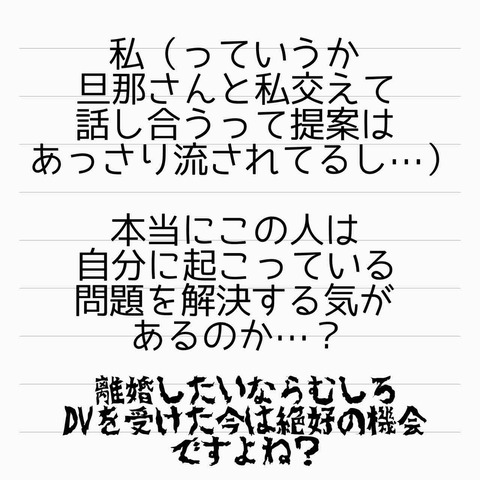 私（っていうか
旦那さんと私交えて
話し合うって提案は
あっさり流されてるし…）
本当にこの人は
自分に起こっている
問題を解決する気が
あるのか…？
離婚したいならむしろ
DVを受けた今は絶好の機会
ですよね？